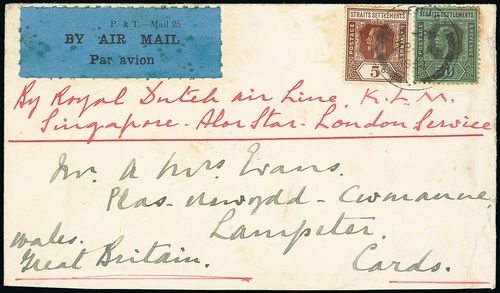 P. & T.—Mail 25
BY AIR MAIL
Par avion
STRAITS SETTLEMENTS
POSTAGE
5
STRAITS SETTLEMENTS
POSTAGE
By Royal Dutch air Line, K.L.M.
Singapore - Alor Star - London Service
Mr. & Mrs Evans.
Plas-Newydd - Cwmanne,
Lampeter.
Wales.
Great Britain.
Cards.